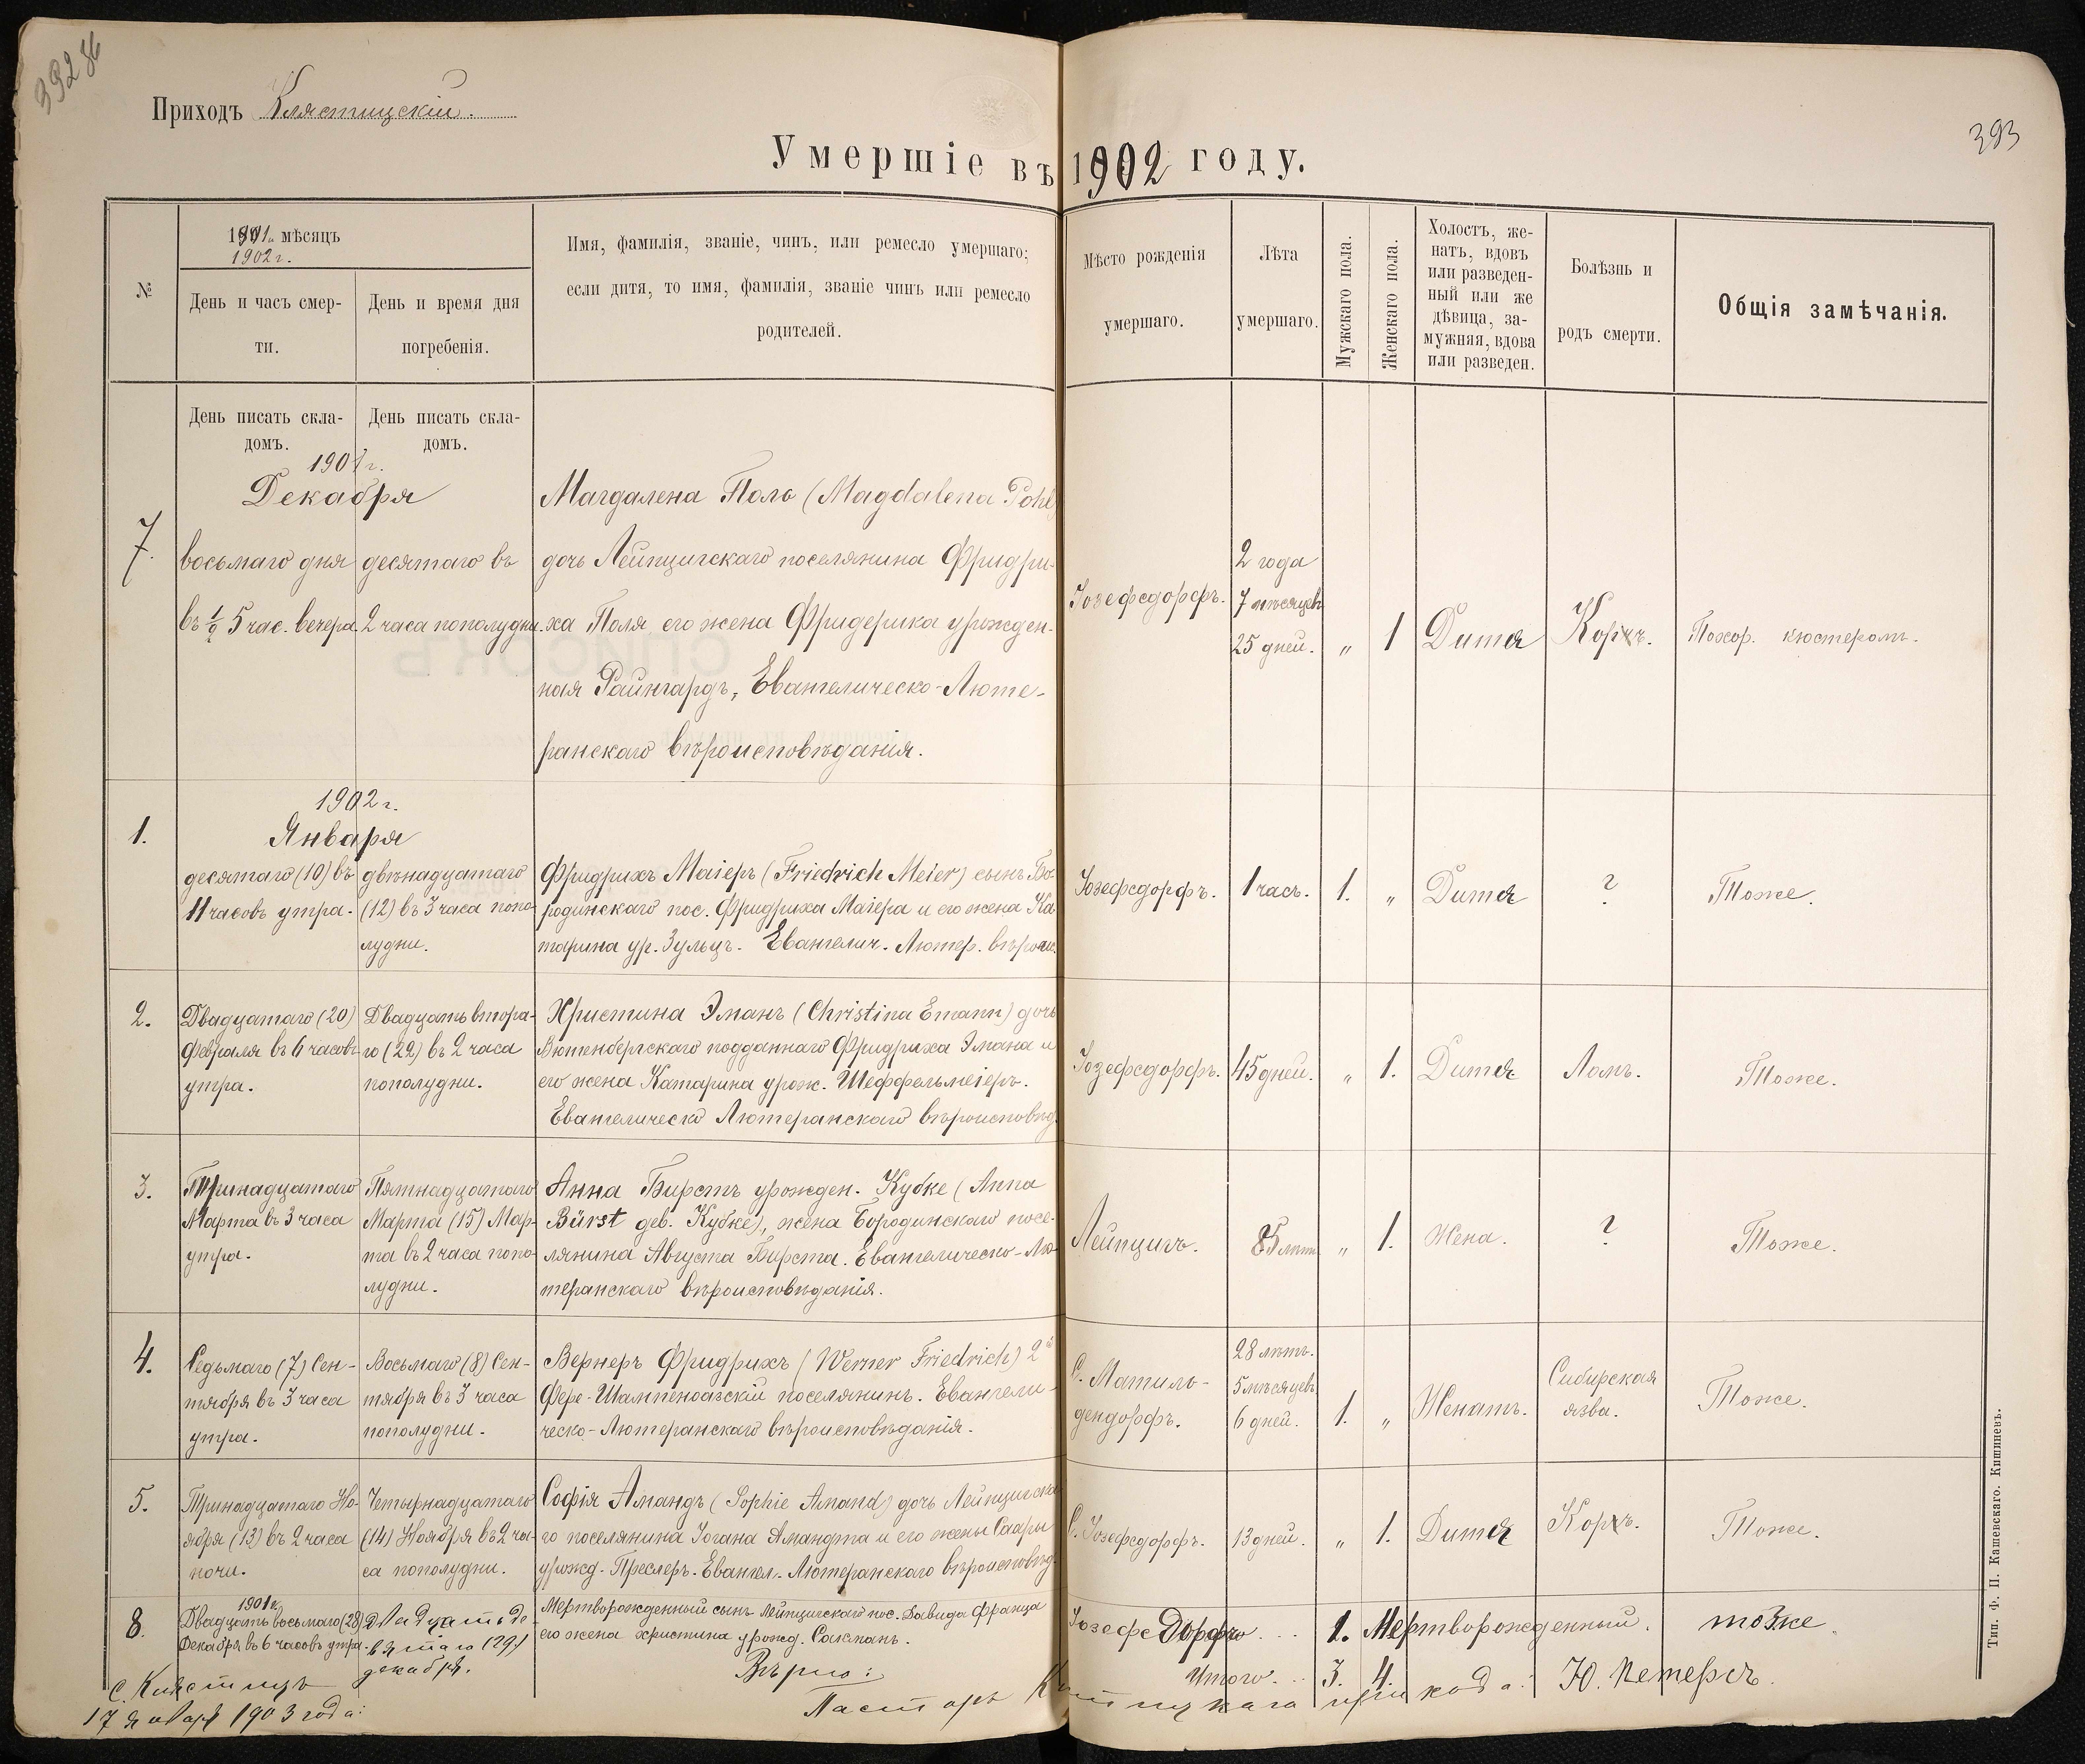 392 об
Приходъ Клястицскій.
393
Умершіе въ 1902 году.
№
1901г. мѣсяцъ
1902 г.
День и часъ смер-
ти.
День и время дня
погребенія.
Имя, фамилія, званіе, чинъ, или ремесло умершаго;
если дитя, то имя, фамилія, званіе чинъ или ремесло
родителей.
Мѣсто рожденія
умершаго.
Лѣта
умершаго.
Мужскаго пола.
Женскаго пола.
Холостъ, же-
натъ, вдовъ
или разведен-
ный или же
дѣвица, за-
мужняя, вдова
или разведен.
Болѣзнь и
родъ смерти.
Общія замѣчанія.
День писать скла-
домъ.
День писать скла-
домъ.
1901 г.
Декабря
7.
восьмаго дня
въ ½ 5 час. вечера.
десятаго въ
2 часа пополудни.
Магдалена Поль (Magdalena Pohl)
дочь Лейпцигскаго поселянина Фридри-
ха Поля его жена Фридерика урожден-
ная Райнгардъ, Евангелическо-Люте-
ранскаго вѣроисповѣданія.
Іозефсдорфъ.
2 года
7 мѣсяцевъ
25 дней.
„
1
Дитя
Корь.
Похор. кюстеромъ.
1902 г.
Января
1.
десятаго (10) въ
11 часовъ утра.
двѣнадцатаго
(12) въ 3 часа попо-
лудни.
Фридрихъ Маіеръ (Friedrich Meier) сынъ Бо-
родинскаго пос. Фридриха Маіера и его жена Ка-
тарина ур. Зульцъ. Евангелич. Лютер. вѣроис.
Іозефсдорфъ.
1 часъ.
1.
„
Дитя
?
Тоже.
2.
Двадцатаго (20)
Февраля въ 6 часовъ
утра.
Двадцать втора-
го (22) въ 2 часа
пополудни.
Христина Эманъ (Christina Emann) дочь
Вютенбергскаго подданнаго Фридриха Эмана и
его жена Катарина урож. Шеффельмеіеръ.
Евангелическо Лютеранскаго вѣроисповѣд.
Іозефсдорфъ.
45 дней.
„
1.
Дитя
Ломъ.
Тоже.
3.
Тринадцатаго
Марта въ 3 часа
утра.
Пятнадцатаго
Марта (15) Мар-
та въ 2 часа попо-
лудни.
Анна Бирстъ урожден. Кубке (Anna
Bürst geb. Кубке), жена Бородинскаго посе-
лянина Августа Бирста. Евангелическо-Лю-
теранскаго вѣроисповѣданія.
Лейпцигъ.
85 лѣтъ
„
1.
Жена.
?
Тоже.
4.
Седьмаго (7) Сен-
тября въ 3 часа
утра.
Восьмаго (8) Сен-
тября въ 3 часа
пополудни.
Вернеръ Фридрихъ (Werner Friedrich) 2й
Фере-Шампеноазскій поселянинъ. Евангели-
ческо-Лютеранскаго вѣроисповѣданія.
С. Матиль-
дендорфъ.
28 лѣтъ.
5 мѣсяцевъ
6 дней.
1.
„
Женатъ.
Сибирская
язва.
Тоже.
5.
Тринадцатаго Но-
ября (13) въ 2 часа
ночи.
Четырнадцатаго
(14) Ноября въ 2 ча-
са пополудни.
Софія Амандъ (Sophie Amand) дочь Лейпцигска-
го поселянина Іогана Амандта и его жены Саары
урожд. Преслеръ. Евангел. Лютеранскаго вѣроисповѣд.
С. Іозефсдорфъ.
13 дней.
„
1.
Дитя
Корь.
Тоже.
8.
1901 г.
Двадцать восьмаго (28)
Декабря въ 6 часовъ утра.
двадцать де-
вятаго (29)
декабря.
Мертворожденный сынъ Лейпцигскаго пос. Давида Франца
его жена Христина урожд. Сакманъ.
Іозефсдорфъ
1.
Мертворожденный.
тоже
Итого 3. 4.
Вѣрно:
С. Клястицъ
17 января 1903 года:
Пасторъ Клястицкаго прихода: Ю. Петерсъ
Тип. Ф. П. Кашевскаго. Кишиневъ.